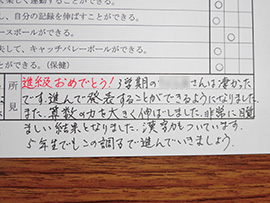 楽しく運動することができる。
、自分の記録を伸ばすことができる。
ースボールができる。
夫して、キャッチバレーボールができる。
とができる。(保健)
所見
進級おめでとう！3学期の さんは凄かった
です。進んで発表することができるようになりました。
また、算数の力を大きく伸ばしました。非常に目覚
ましい結果となりました。漢字力もついています。
5年生でもこの調子で進んでいきましょう。